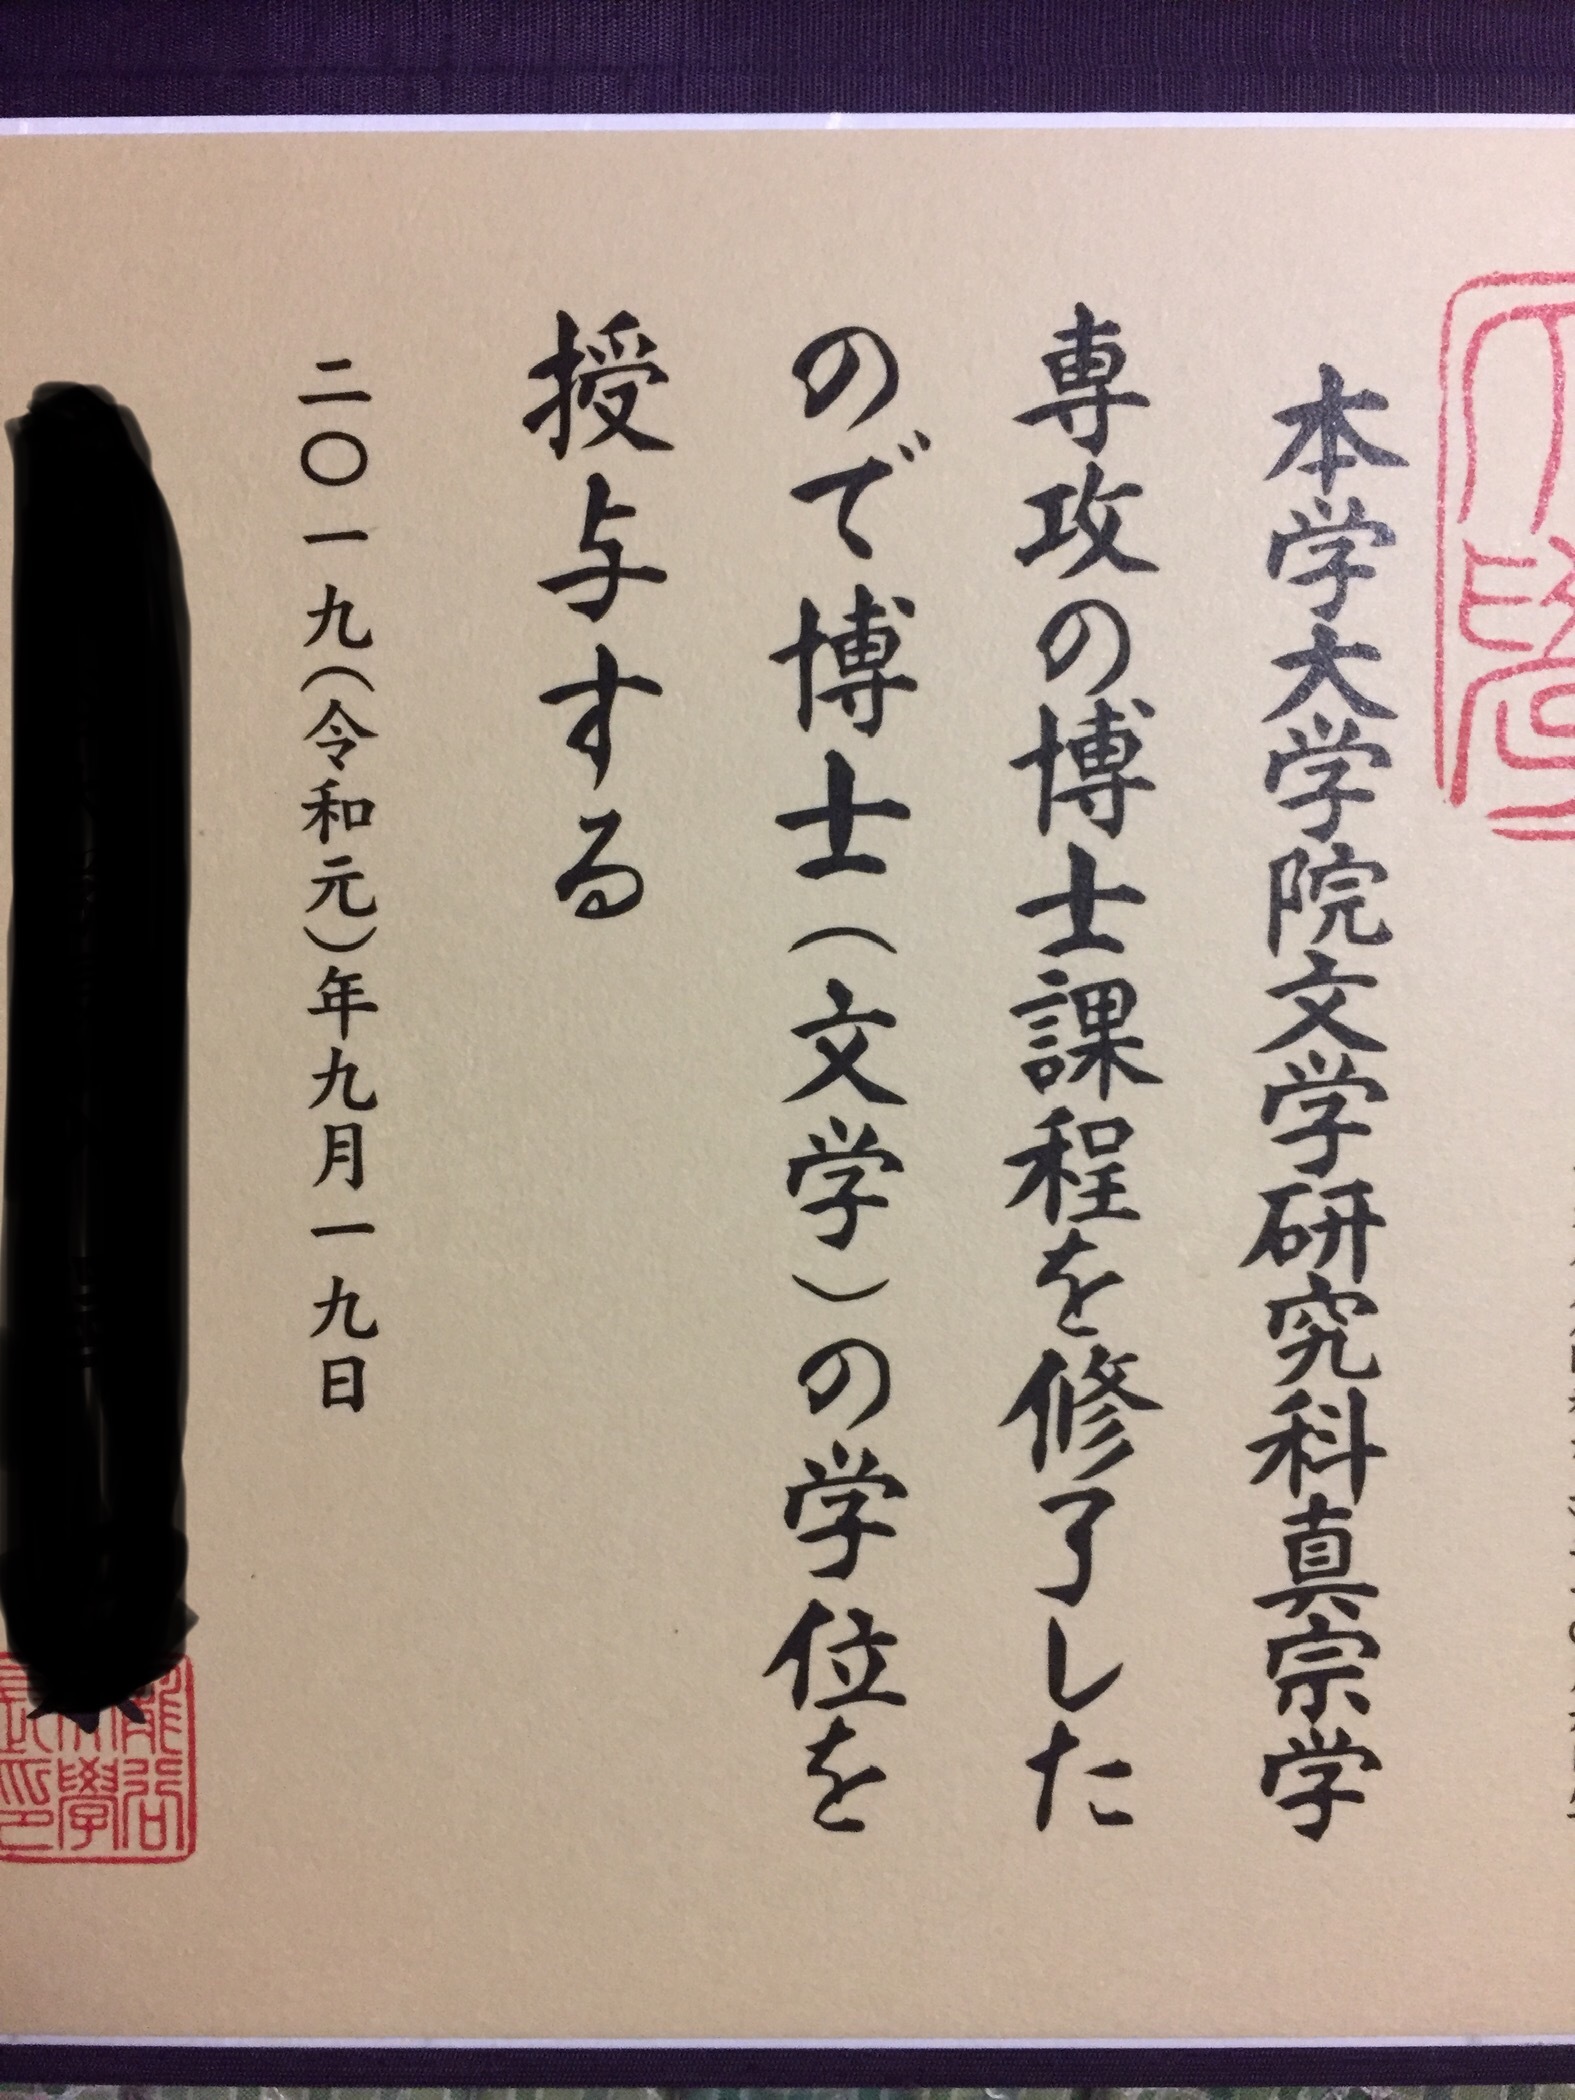 本学大学院文学研究科真宗学
専攻の博士課程を修了した
ので博士(文学)の学位を
授与する
二〇一九(令和元)年九月一九日